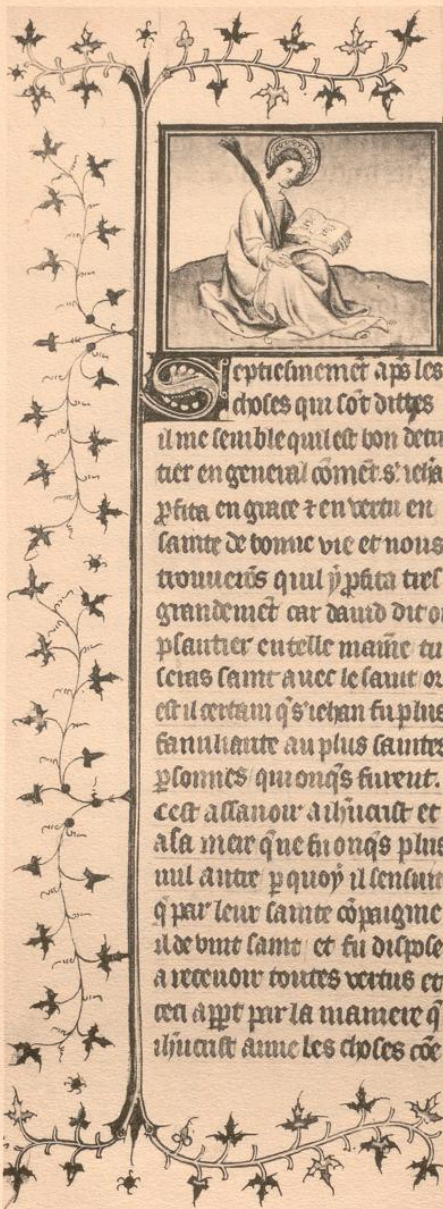 Septiesmemēt ap̄s les
choses qui sōt dittes
il me semble quil est bon detu
tier en general cōmēt .s. iehā
ꝓfita en grace ⁊ en vertu en
sainte de bonne vie et nous
trouuerōs quil ỹ ꝓfita tres
grandemēt car dauid dit ou
psautier en telle maīe tu
seras saint auec le saint or
est il certain q̄ s' iehan fu plus
familiante au plus saintes
ꝑsonnes qui onq̄s furent.
cest assauoir a ihūcrist et
a sa mere que fu onq̄s plus
nul autre ꝑ quoy il sensuit
q̄ par leur sainte cōpaignie
il deuint saint et fu dispose
a receuoir toutes vertus et
ceci app̄t par la maniere q̄
ihūcrist aime les choses cōe